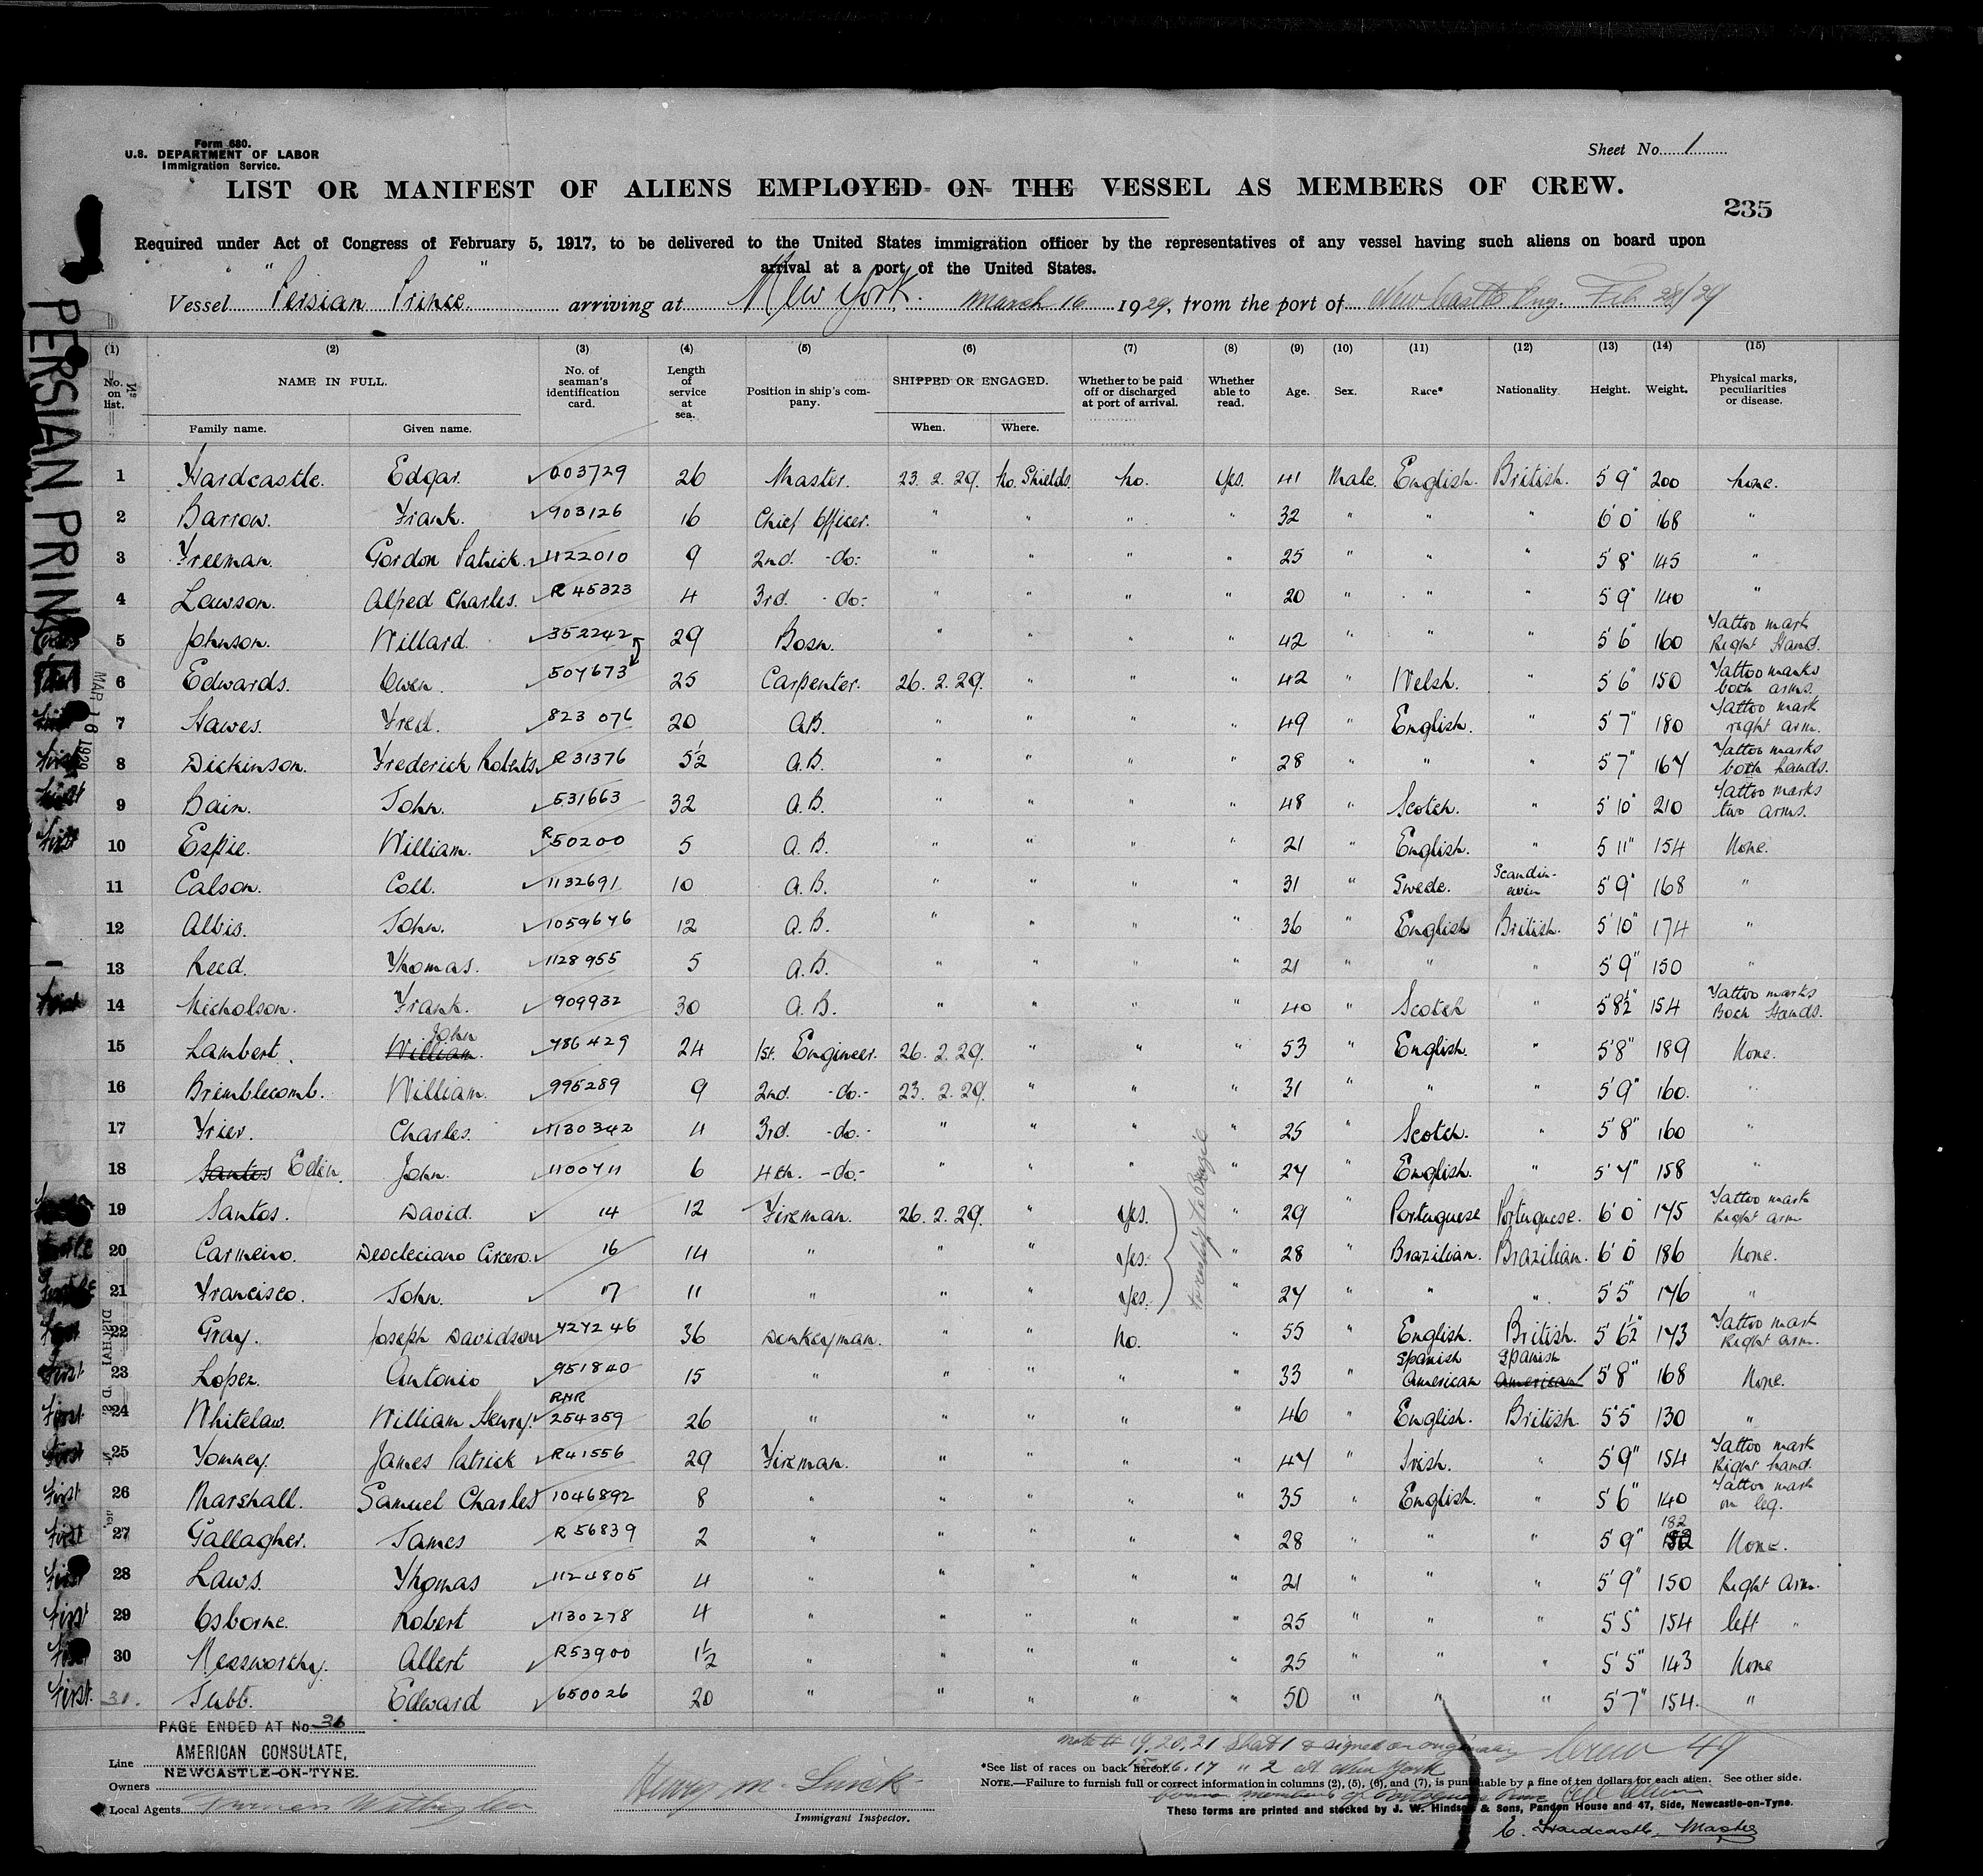 Form 680.
U.S. DEPARTMENT OF LABOR
Immigration Service.
Sheet No. 1
LIST OR MANIFEST OF ALIENS EMPLOYED ON THE VESSEL AS MEMBERS OF CREW.
235
Required under Act of Congress of February 5, 1917, to be delivered to the United States immigration officer by the representatives of any vessel having such aliens on board upon
arrival at a port of the United States.
Vessel "Persian Prince" arriving at New York. March 16 1929, from the port of Newcastle Eng. Feb 28/29
PERSIAN PRINCE
MAR 16 1929
(1) (2) (3) (4) (5) (6) (7) (8) (9) (10) (11) (12) (13) (14) (15)
No. on list. NAME IN FULL. Family name. Given name. No. of seaman's identification card. Length of service at sea. Position in ship's company. SHIPPED OR ENGAGED. When. Where. Whether to be paid off or discharged at port of arrival. Whether able to read. Age. Sex. Race* Nationality Height. Weight. Physical marks, peculiarities or disease.
1 Hardcastle. Edgar. 003729 26 Master. 23. 2. 29. No. Shields. No. Yes. 41 Male. English. British. 5' 9" 200 None.
2 Barrow. Frank. 903126 16 Chief Officer. " " " " 32 " " " 6' 0" 168 "
3 Freeman. Gordon Patrick. 1122010 9 2nd. -do- " " " " 25 " " " 5' 8" 145 "
4 Lawson. Alfred Charles. R 45323 4 3rd. -do- " " " " 20 " " " 5' 9" 140 "
5 Johnson. Willard. 352242 29 Bosn. " " " " 42 " " " 5' 6" 160 Tattoo mark Right Hand.
6 Edwards. Owen. 507673 25 Carpenter. 26. 2. 29. " " " 42 " Welsh. " 5' 6" 150 Tattoo marks both arms.
7 Hawes. Fred. 823076 20 A.B. " " " " 49 " English. " 5' 7" 180 Tattoo mark right arm.
8 Dickinson. Frederick Roberts. R 31376 5½ A.B. " " " " 28 " " " 5' 7" 167 Tattoo marks both hands.
9 Bain. John. 531663 32 A.B. " " " " 48 " Scotch. " 5' 10" 210 Tattoo marks two arms.
10 Espie. William. R 50200 5 A.B. " " " " 21 " English. " 5' 11" 154 None.
11 Calson. Coll. 1132691 10 A.B. " " " " 31 " Swede. Scandinavin 5' 9" 168 "
12 Albis. John. 1059676 12 A.B. " " " " 36 " English British. 5' 10" 174 "
13 Reed. Thomas. 1128955 5 A.B. " " " " 21 " " " 5' 9" 150 "
14 Nicholson. Frank. 909932 30 A.B. " " " " 40 " Scotch " 5' 8½" 154 Tattoo marks Both Hands.
15 Lambert. William. John 786429 24 1st. Engineer. 26. 2. 29. " " " 53 " English. " 5' 8" 189 None.
16 Brimblecomb. William. 995289 9 2nd. -do- 23. 2. 29. " " " 31 " " " 5' 9" 160. "
17 Frier. Charles. 1130342 4 3rd. -do- " " " " 25 " Scotch. " 5' 8" 160 "
18 Santos Edin. John. 1100711 6 4th. -do- " " " " 27 " English. " 5' 7" 158 "
19 Santos. David. 14 12 Fireman. 26. 2. 29. " Yes. " 29 " Portuguese Portuguese. 6' 0" 175 Tattoo mark Right arm
20 Carmeino. Deocleciano Circero. 16 14 " " " Yes. " 28 " Brazilian. Brazilian. 6' 0" 186 None.
21 Francisco. John. 17 11 " " " Yes. " 27 " " " 5' 5" 176 "
22 Gray. Joseph Davidson 727246 36 Donkeyman. " " No. " 55 " English. British. 5' 6½" 173 Tattoo mark Right arm.
23 Lopez. Antonio 951840 15 " " " " " 33 " Spanish American Spanish American 5' 8" 168 None.
24 Whitelaw. William Henry. RNR 254359 26 " " " " " 46 " English. British. 5' 5" 130 "
25 Tomney. James Patrick R 41556 29 Fireman. " " " " 47 " Irish. " 5' 9" 154 Tattoo mark Right hand.
26 Marshall. Samuel Charles 1046892 8 " " " " " 35 " English. " 5' 6" 140 Tattoo mark on leg.
27 Gallagher. James R 56839 2 " " " " " 28 " " " 5' 9" 182 None.
28 Laws. Thomas 1124805 4 " " " " " 21 " " " 5' 9" 150 Right Arm.
29 Osborne. Robert 1130278 4 " " " " " 25 " " " 5' 5" 154 left "
30 Messworthy. Albert R 53900 1½ " " " " " 25 " " " 5' 5" 143 None
31. Tubb. Edward 650026 20 " " " " " 50 " " " 5' 7" 154. "
PAGE ENDED AT No. 31
AMERICAN CONSULATE,
NEWCASTLE-ON-TYNE.
Line
Owners
Local Agents
Immigrant Inspector.
Note # 19, 20, 21 Sheet 1 & signed on originally
Crew 49
16, 17 " 2 at New York
*See list of races on back hereof.
NOTE.—Failure to furnish full or correct information in columns (2), (5), (6), and (7), is punishable by a fine of ten dollars for each alien. See other side.
These forms are printed and stocked by J. W. Hindson & Sons, Pandon House and 47, Side, Newcastle-on-Tyne.
E. Hardcastle, Master